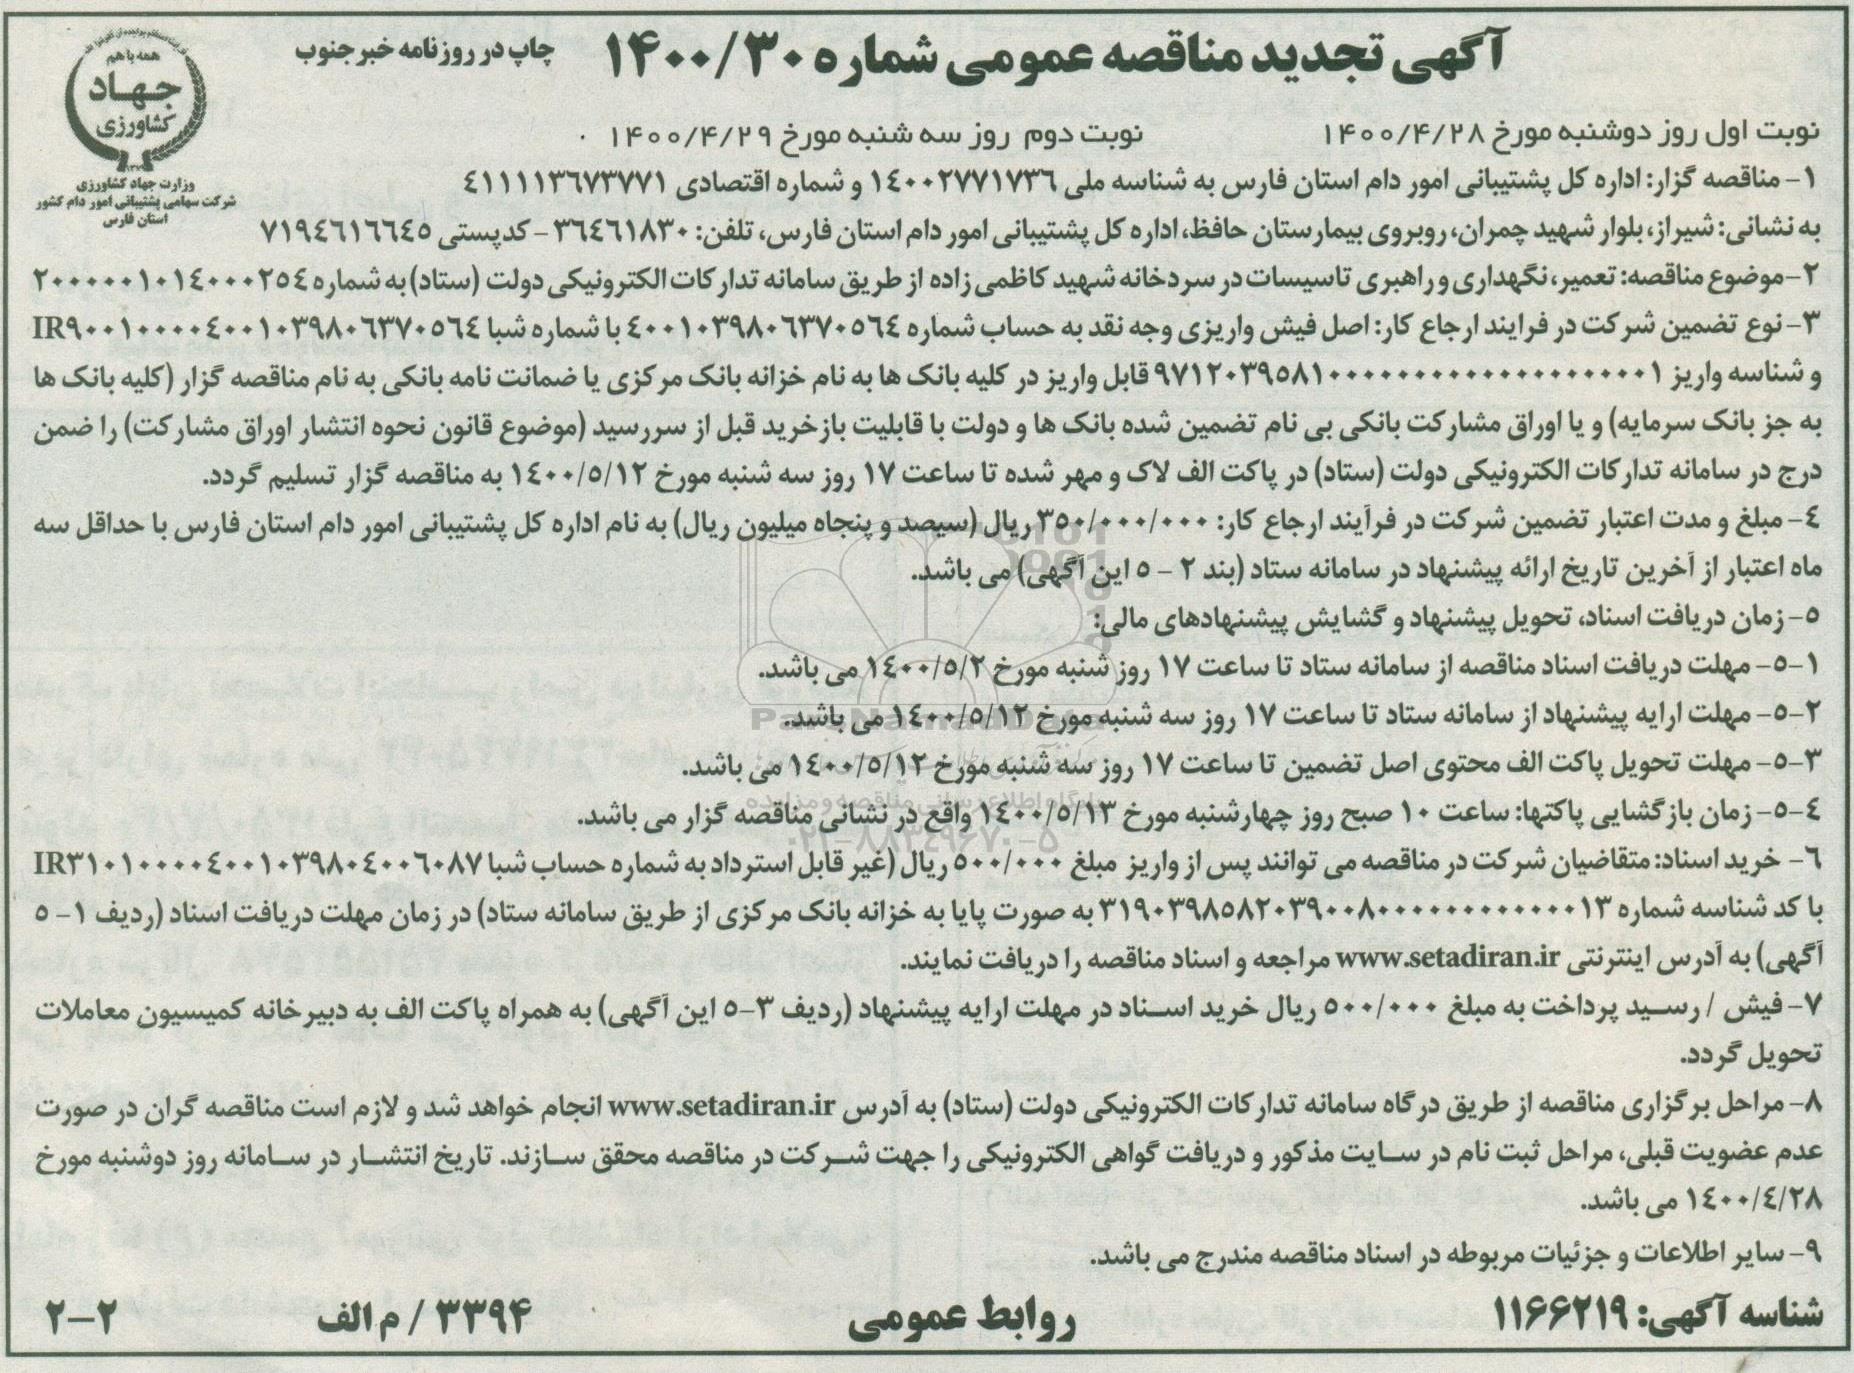 آگهی تجدید مناقصه عمومی شماره ۱۴۰۰/۳۰
چاپ در روزنامه خبر جنوب
همه با هم
جهاد
کشاورزی
وزارت جهاد کشاورزی
شرکت سهامی پشتیبانی امور دام کشور
استان فارس
نوبت اول روز دوشنبه مورخ ۱۴۰۰/۴/۲۸ نوبت دوم روز سه شنبه مورخ ۱۴۰۰/۴/۲۹
۱- مناقصه گزار: اداره کل پشتیبانی امور دام استان فارس به شناسه ملی ۱۴۰۰۲۷۷۱۷۳۶ و شماره اقتصادی ۴۱۱۱۱۳۶۷۳۷۷۱
به نشانی: شیراز، بلوار شهید چمران، روبروی بیمارستان حافظ، اداره کل پشتیبانی امور دام استان فارس، تلفن: ۳۶۴۶۱۸۳۰ - کدپستی ۷۱۹۴۶۱۶۶۴۵
۲-موضوع مناقصه: تعمیر، نگهداری و راهبری تاسیسات در سردخانه شهید کاظمی زاده از طریق سامانه تدارکات الکترونیکی دولت (ستاد) به شماره ۲۰۰۰۰۰۱۰۱۴۰۰۰۲۵۴
۳- نوع تضمین شرکت در فرایند ارجاع کار: اصل فیش واریزی وجه نقد به حساب شماره ۴۰۰۱۰۳۹۸۰۶۳۷۰۵۶۴ با شماره شبا IR۹۰۰۱۰۰۰۰۴۰۰۱۰۳۹۸۰۶۳۷۰۵۶۴
و شناسه واریز ۹۷۱۲۰۳۹۵۸۱۰۰۰۰۰۰۰۰۰۰۰۰۰۰۰۰۰۰۰۱ قابل واریز در کلیه بانک ها به نام خزانه بانک مرکزی یا ضمانت نامه بانکی به نام مناقصه گزار (کلیه بانک ها
به جز بانک سرمایه) و یا اوراق مشارکت بانکی بی نام تضمین شده بانک ها و دولت با قابلیت بازخرید قبل از سررسید (موضوع قانون نحوه انتشار اوراق مشارکت) را ضمن
درج در سامانه تدارکات الکترونیکی دولت (ستاد) در پاکت الف لاک و مهر شده تا ساعت ۱۷ روز سه شنبه مورخ ۱۴۰۰/۵/۱۲ به مناقصه گزار تسلیم گردد.
۴- مبلغ و مدت اعتبار تضمین شرکت در فرآیند ارجاع کار: ۳۵۰/۰۰۰/۰۰۰ ریال (سیصد و پنجاه میلیون ریال) به نام اداره کل پشتیبانی امور دام استان فارس با حداقل سه
ماه اعتبار از آخرین تاریخ ارائه پیشنهاد در سامانه ستاد (بند ۲ - ۵ این آگهی) می باشد.
۵- زمان دریافت اسناد، تحویل پیشنهاد و گشایش پیشنهادهای مالی:
۵-۱- مهلت دریافت اسناد مناقصه از سامانه ستاد تا ساعت ۱۷ روز شنبه مورخ ۱۴۰۰/۵/۲ می باشد.
۵-۲- مهلت ارایه پیشنهاد از سامانه ستاد تا ساعت ۱۷ روز سه شنبه مورخ ۱۴۰۰/۵/۱۲ می باشد.
۵-۳- مهلت تحویل پاکت الف محتوی اصل تضمین تا ساعت ۱۷ روز سه شنبه مورخ ۱۴۰۰/۵/۱۲ می باشد.
۵-۴- زمان بازگشایی پاکتها: ساعت ۱۰ صبح روز چهارشنبه مورخ ۱۴۰۰/۵/۱۳ واقع در نشانی مناقصه گزار می باشد.
۶- خرید اسناد: متقاضیان شرکت در مناقصه می توانند پس از واریز مبلغ ۵۰۰/۰۰۰ ریال (غیر قابل استرداد به شماره حساب شبا IR۳۱۰۱۰۰۰۰۴۰۰۱۰۳۹۸۰۴۰۰۶۰۸۷
با کد شناسه شماره ۳۱۹۰۳۹۸۵۸۲۰۳۹۰۰۸۰۰۰۰۰۰۰۰۰۰۰۰۱۳ به صورت پایا به خزانه بانک مرکزی از طریق سامانه ستاد) در زمان مهلت دریافت اسناد (ردیف ۱- ۵
آگهی) به آدرس اینترنتی www.setadiran.ir مراجعه و اسناد مناقصه را دریافت نمایند.
۷- فیش / رسید پرداخت به مبلغ ۵۰۰/۰۰۰ ریال خرید اسناد در مهلت ارایه پیشنهاد (ردیف ۳-۵ این آگهی) به همراه پاکت الف به دبیرخانه کمیسیون معاملات
تحویل گردد.
۸- مراحل برگزاری مناقصه از طریق درگاه سامانه تدارکات الکترونیکی دولت (ستاد) به آدرس www.setadiran.ir انجام خواهد شد و لازم است مناقصه گران در صورت
عدم عضویت قبلی، مراحل ثبت نام در سایت مذکور و دریافت گواهی الکترونیکی را جهت شرکت در مناقصه محقق سازند. تاریخ انتشار در سامانه روز دوشنبه مورخ
۱۴۰۰/۴/۲۸ می باشد.
۹- سایر اطلاعات و جزئیات مربوطه در اسناد مناقصه مندرج می باشد.
شناسه آگهی: ۱۱۶۶۲۱۹ روابط عمومی ۳۳۹۴ / م الف ۲-۲